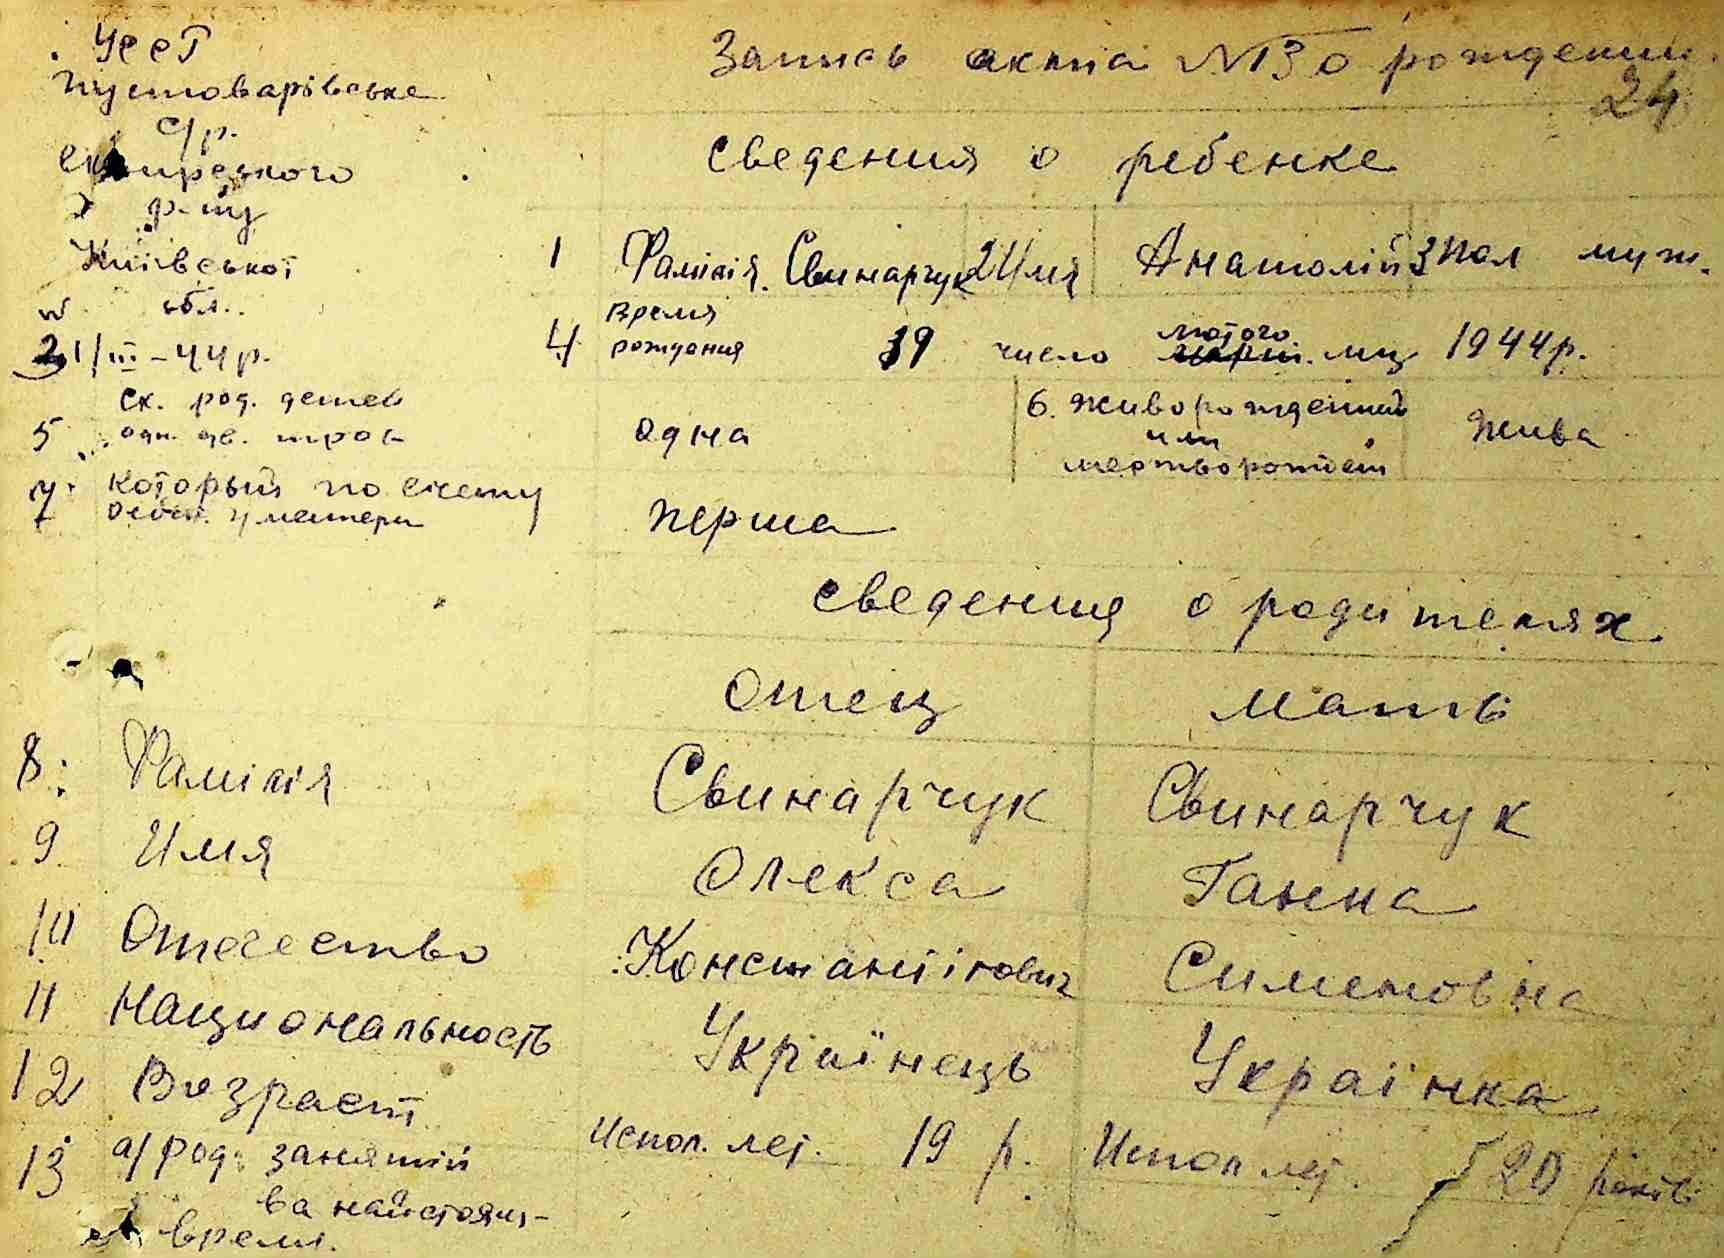 УССР
Пустоварівське
с/р.
Сквирського
р-ну
Київської
обл.
21/III-44р.
Запись акта №13 о рождении.
24
Сведения о ребенке
1 Фамілія. Свинарчук 2 Имя Анатолій 3 пол муж.
4 время рождения 19 число лютого мц 1944р.
5 ск. род. детей одн. дв. трой одна 6. живорожденный или мертворожден жива
7. который по счету ребен. у матери перша
Сведения о родителях
Отец мать
8. Фамілія Свинарчук Свинарчук
9 Имя Олекса Ганна
10 Отечество Константінович Сименовна
11 Национальность Українець Українка
12 Возраст Испол. лет. 19 р. Испол лет. 20 років
13 а/ род. занятий
ва найстоящ-
время.